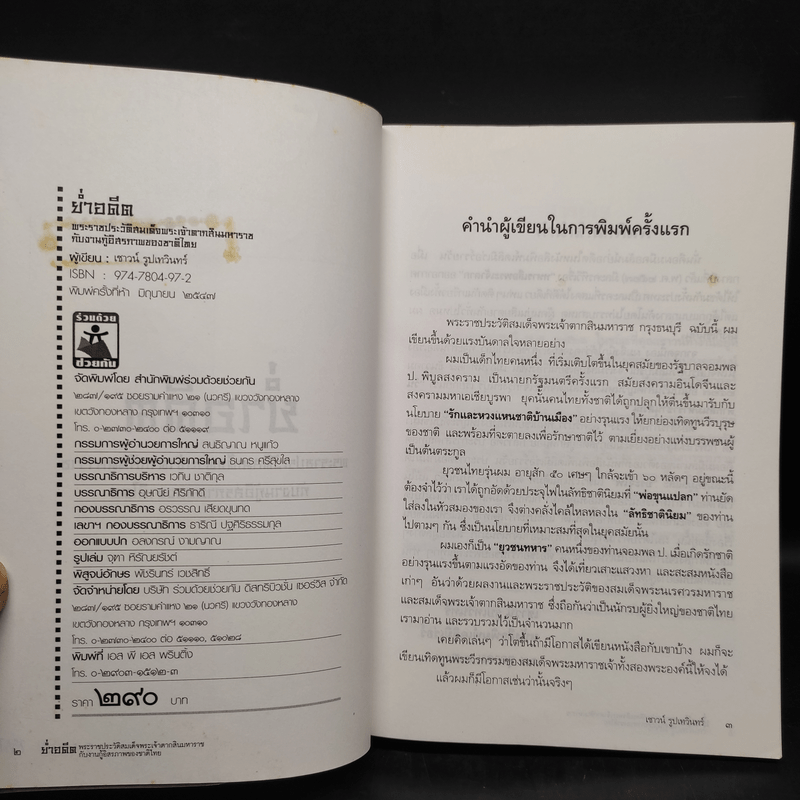 ย่ำอดีต
พระราชประวัติสมเด็จพระเจ้าตากสินมหาราช
กับงานกู้อิสรภาพของชาติไทย
ผู้เขียน : เชาวน์ รูปเทวินทร์
ISBN : 974-7804-97-2
พิมพ์ครั้งที่ห้า มิถุนายน ๒๕๔๗
ร่วมด้วย
ช่วยกัน
จัดพิมพ์โดย สำนักพิมพ์ร่วมด้วยช่วยกัน
๒๘๗/๑๙๕ ซอยรามคำแหง ๒๑ (นวศรี) แขวงวังทองหลาง
เขตวังทองหลาง กรุงเทพฯ ๑๐๓๑๐
โทร. ๐-๒๗๓๐-๒๔๐๐ ต่อ ๕๑๑๑๙
กรรมการผู้อำนวยการใหญ่ สนธิญาณ หนูแก้ว
กรรมการผู้ช่วยผู้อำนวยการใหญ่ ธนกร ศรีสุขใส
บรรณาธิการบริหาร เวทิน ชาติกุล
บรรณาธิการ อุษณีย์ ศิริภักดี
กองบรรณาธิการ อรวรรณ เสียดขุนทด
เลขาฯ กองบรรณาธิการ ธาริณี ปฐศิริธรรมกุล
ออกแบบปก อลงกรณ์ งามญาณ
รูปเล่ม จุฑา หิรัณยรัชต์
พิสูจน์อักษร พัชรินทร์ เวชสิทธิ์
จัดจำหน่ายโดย บริษัท ร่วมด้วยช่วยกัน ดิสทริบิวชั่น เซอร์วิส จำกัด
๒๘๗/๑๙๕ ซอยรามคำแหง ๒๑ (นวศรี) แขวงวังทองหลาง
เขตวังทองหลาง กรุงเทพฯ ๑๐๓๑๐
โทร. ๐-๒๗๓๐-๒๔๐๐ ต่อ ๕๑๑๑๐, ๕๑๐๒๘
พิมพ์ที่ เอส พี เอส พรินติ้ง
โทร. ๐-๒๙๐๓-๑๕๑๒-๓
ราคา ๒๙๐ บาท
๒ ย่ำอดีต พระราชประวัติสมเด็จพระเจ้าตากสินมหาราช
กับงานกู้อิสรภาพของชาติไทย
คำนำผู้เขียนในการพิมพ์ครั้งแรก
พระราชประวัติสมเด็จพระเจ้าตากสินมหาราช กรุงธนบุรี ฉบับนี้ ผม
เขียนขึ้นด้วยแรงบันดาลใจหลายอย่าง
ผมเป็นเด็กไทยคนหนึ่ง ที่เริ่มเติบโตขึ้นในยุคสมัยของรัฐบาลจอมพล
ป. พิบูลสงคราม เป็นนายกรัฐมนตรีครั้งแรก สมัยสงครามอินโดจีนและ
สงครามมหาเอเชียบูรพา ยุคนั้นคนไทยทั้งชาติได้ถูกปลุกให้ตื่นขึ้นมารับกับ
นโยบาย "รักและหวงแหนชาติบ้านเมือง" อย่างรุนแรง ให้ยกย่องเทิดทูนวีรบุรุษ
ของชาติ และพร้อมที่จะตายลงเพื่อรักษาชาติไว้ ตามเยี่ยงอย่างแห่งบรรพชนผู้
เป็นต้นตระกูล
ยุวชนไทยรุ่นผม อายุสัก ๕๐ เศษๆ ใกล้จะเข้า ๖๐ หลัดๆ อยู่ขณะนี้
ต้องจำไว้ว่า เราได้ถูกอัดด้วยประจุไฟในลัทธิชาตินิยมที่ "พ่อขุนแปลก" ท่านยัด
ใส่ลงในหัวสมองของเรา จึงต่างคลั่งไคล้ไหลหลงใน "ลัทธิชาตินิยม" ของท่าน
ไปตามๆ กัน ซึ่งเป็นนโยบายที่เหมาะสมที่สุดในยุคสมัยนั้น
ผมเองก็เป็น "ยุวชนทหาร" คนหนึ่งของท่านจอมพล ป. เมื่อเกิดรักชาติ
อย่างรุนแรงขึ้นตามแรงอัดของท่าน จึงได้เที่ยวเสาะแสวงหา และสะสมหนังสือ
เก่าๆ อันว่าด้วยผลงานและพระราชประวัติของสมเด็จพระนเรศวรมหาราช
และสมเด็จพระเจ้าตากสินมหาราช ซึ่งถือกันว่าเป็นนักรบผู้ยิ่งใหญ่ของชาติไทย
เรามาอ่าน และรวบรวมไว้เป็นจำนวนมาก
เคยคิดเล่นๆ ว่าโตขึ้นถ้ามีโอกาสได้เขียนหนังสือกับเขาบ้าง ผมก็จะ
เขียนเทิดทูนพระวีรกรรมของสมเด็จพระมหาราชเจ้าทั้งสองพระองค์นี้ให้จงได้
แล้วผมก็มีโอกาสเช่นว่านั้นจริงๆ
เชาวน์ รูปเทวินทร์ ๓